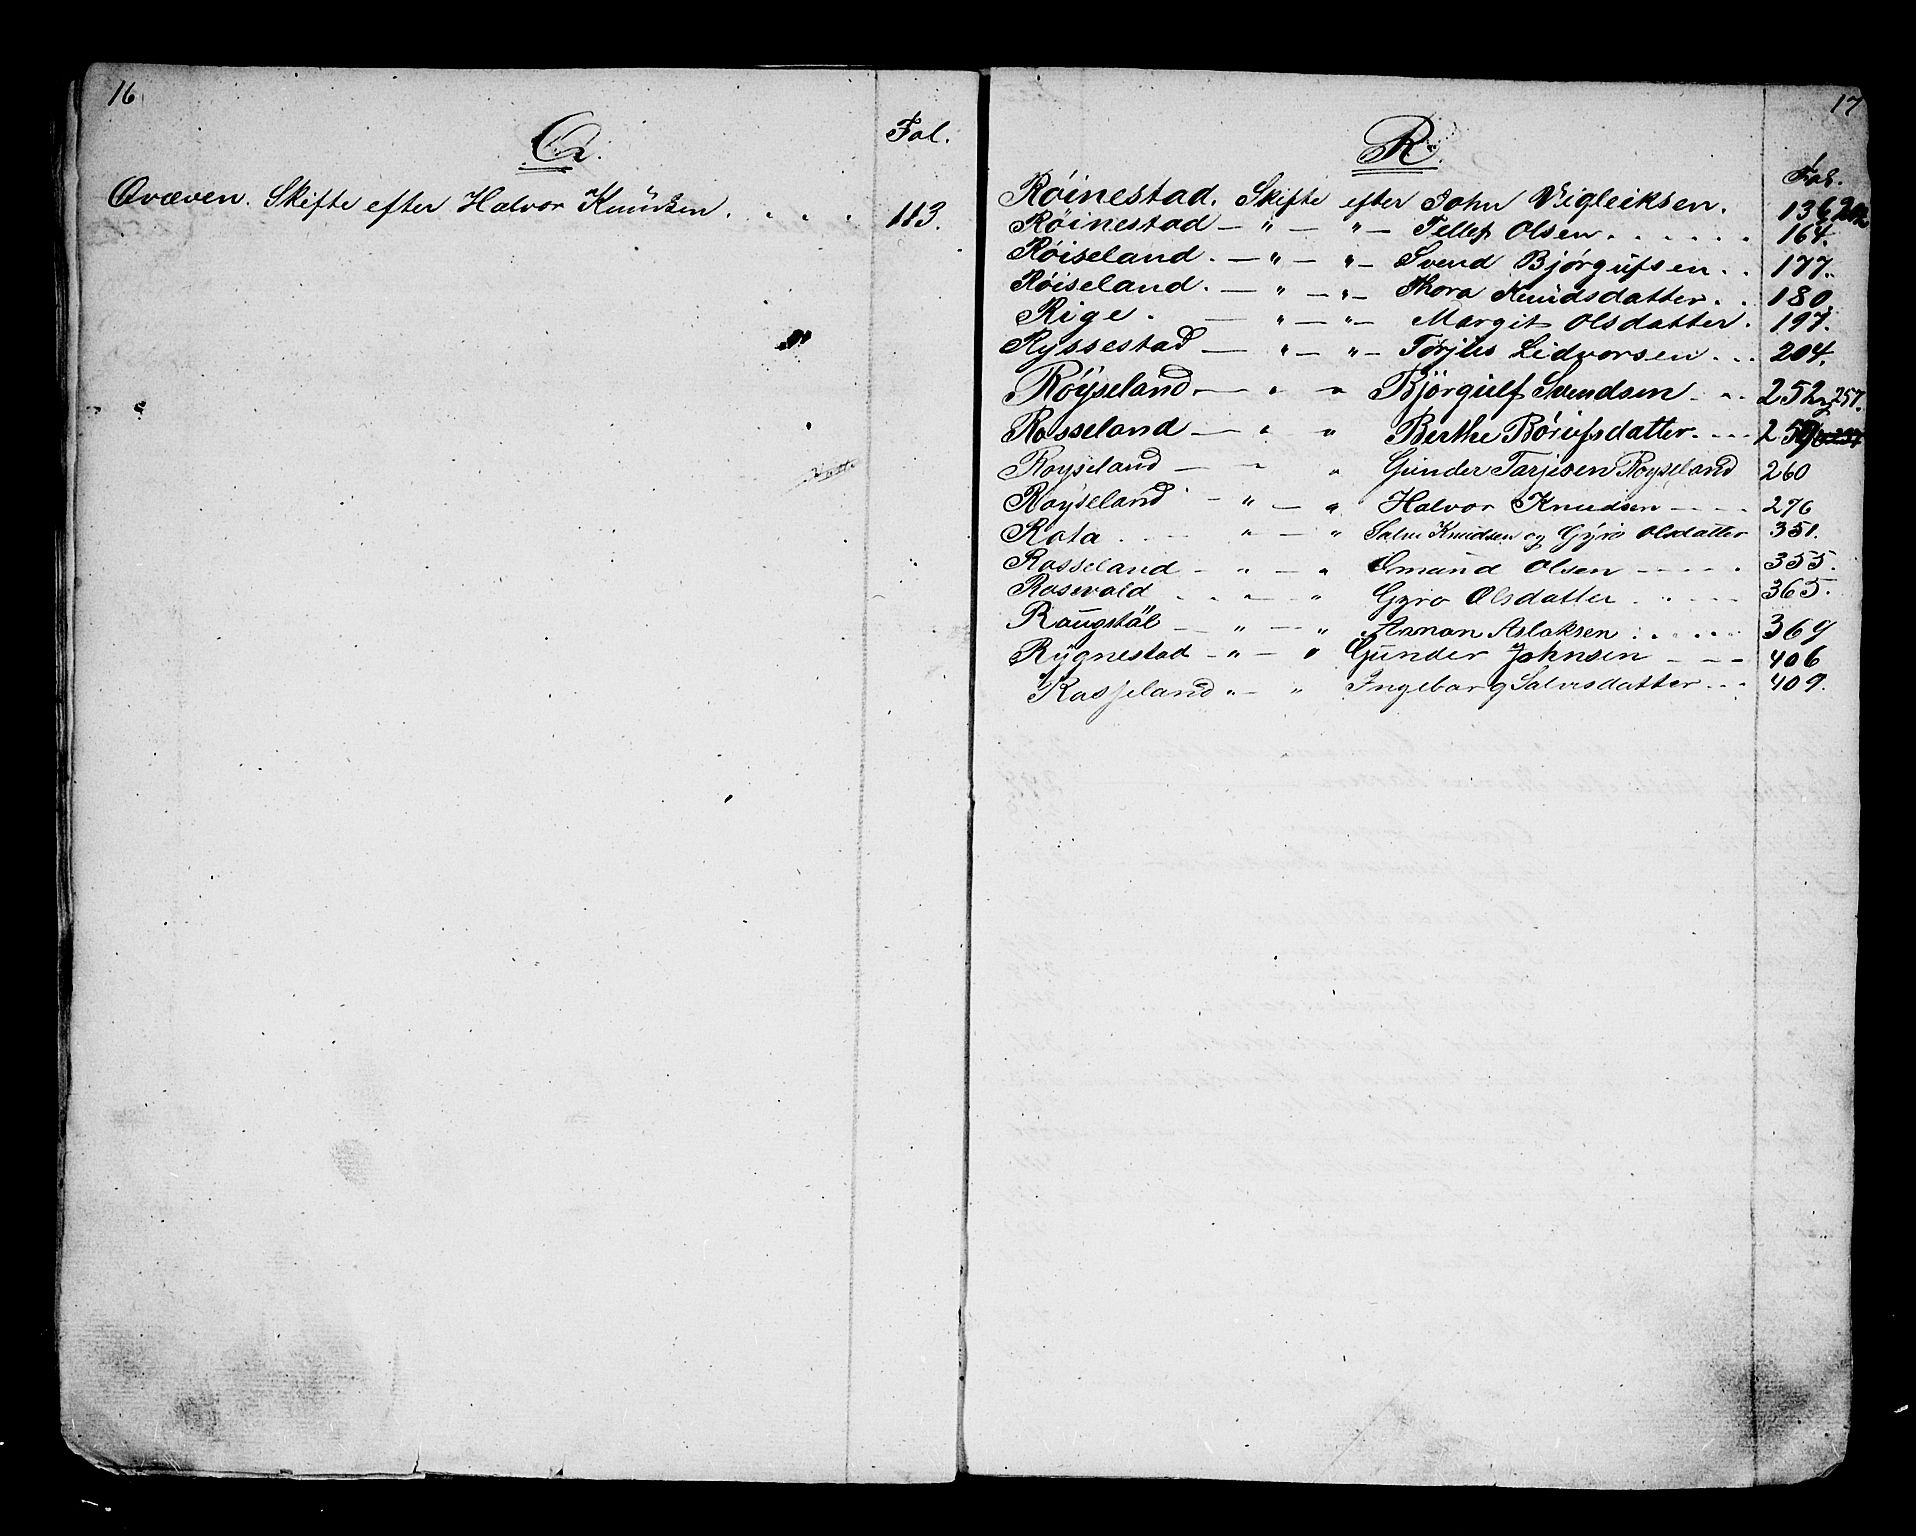 16
Q.
Fol.
Qvæven. Skifte efter Halvor Knudsen . . . . 113.
17
R.
Fol.
Røinestad. Skifte efter John Vigleiksen. 136
Røinestad — " — "— Tellef Olsen . . . . . . 164.
Røiseland. — " — "— Svend Bjørgufsen . . 177.
Røiseland. — " — "— Thora Knudsdatter . . 180.
Rige. — " — "— Margit Olsdatter. 197.
Ryssestad — " — "— Torjus Lidvorsen . . . 204.
Røyseland — " " Bjørgulf Svendsen . . . 252 og 257.
Rosseland — " " Berthe Børufsdatter . . .
Royseland — " " Gunder Tarjesen Royseland 260
Røyseland — " — " Halvor Knudsen - - - - 276
Rota . . . " — " Salve Knudsen og Gyro Olsdatter 351.
Rosseland — " — " Omund Olsen - - - - . 355.
Rosevold . . " — " Gyro Olsdatter . . - - 365.
Raugstøl — " — " Aanon Aslaksen . . . . . 369
Rygnestad — " — " Gunder Johnsen - - - 406
Rosseland " — " Ingeborg Salvesdatter . . . 409.